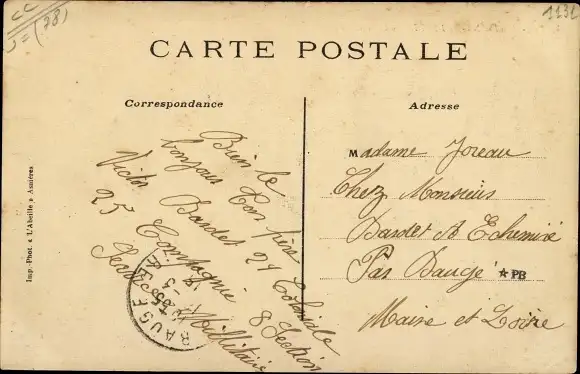 CARTE POSTALE
Correspondance
Adresse
Bien le
bonjour Ton frère
Victor Bardet 24 Coloniale
25 Compagnie 8 Section
Service Millitaire
BAUGÉ
Madame Joreau
Chez Monsieus
Bardet A Echemiré
Par Baugé ★ PB
Maine et Loire
Imp.-Phot. A L'Abeille à Asnières
CC
(28)